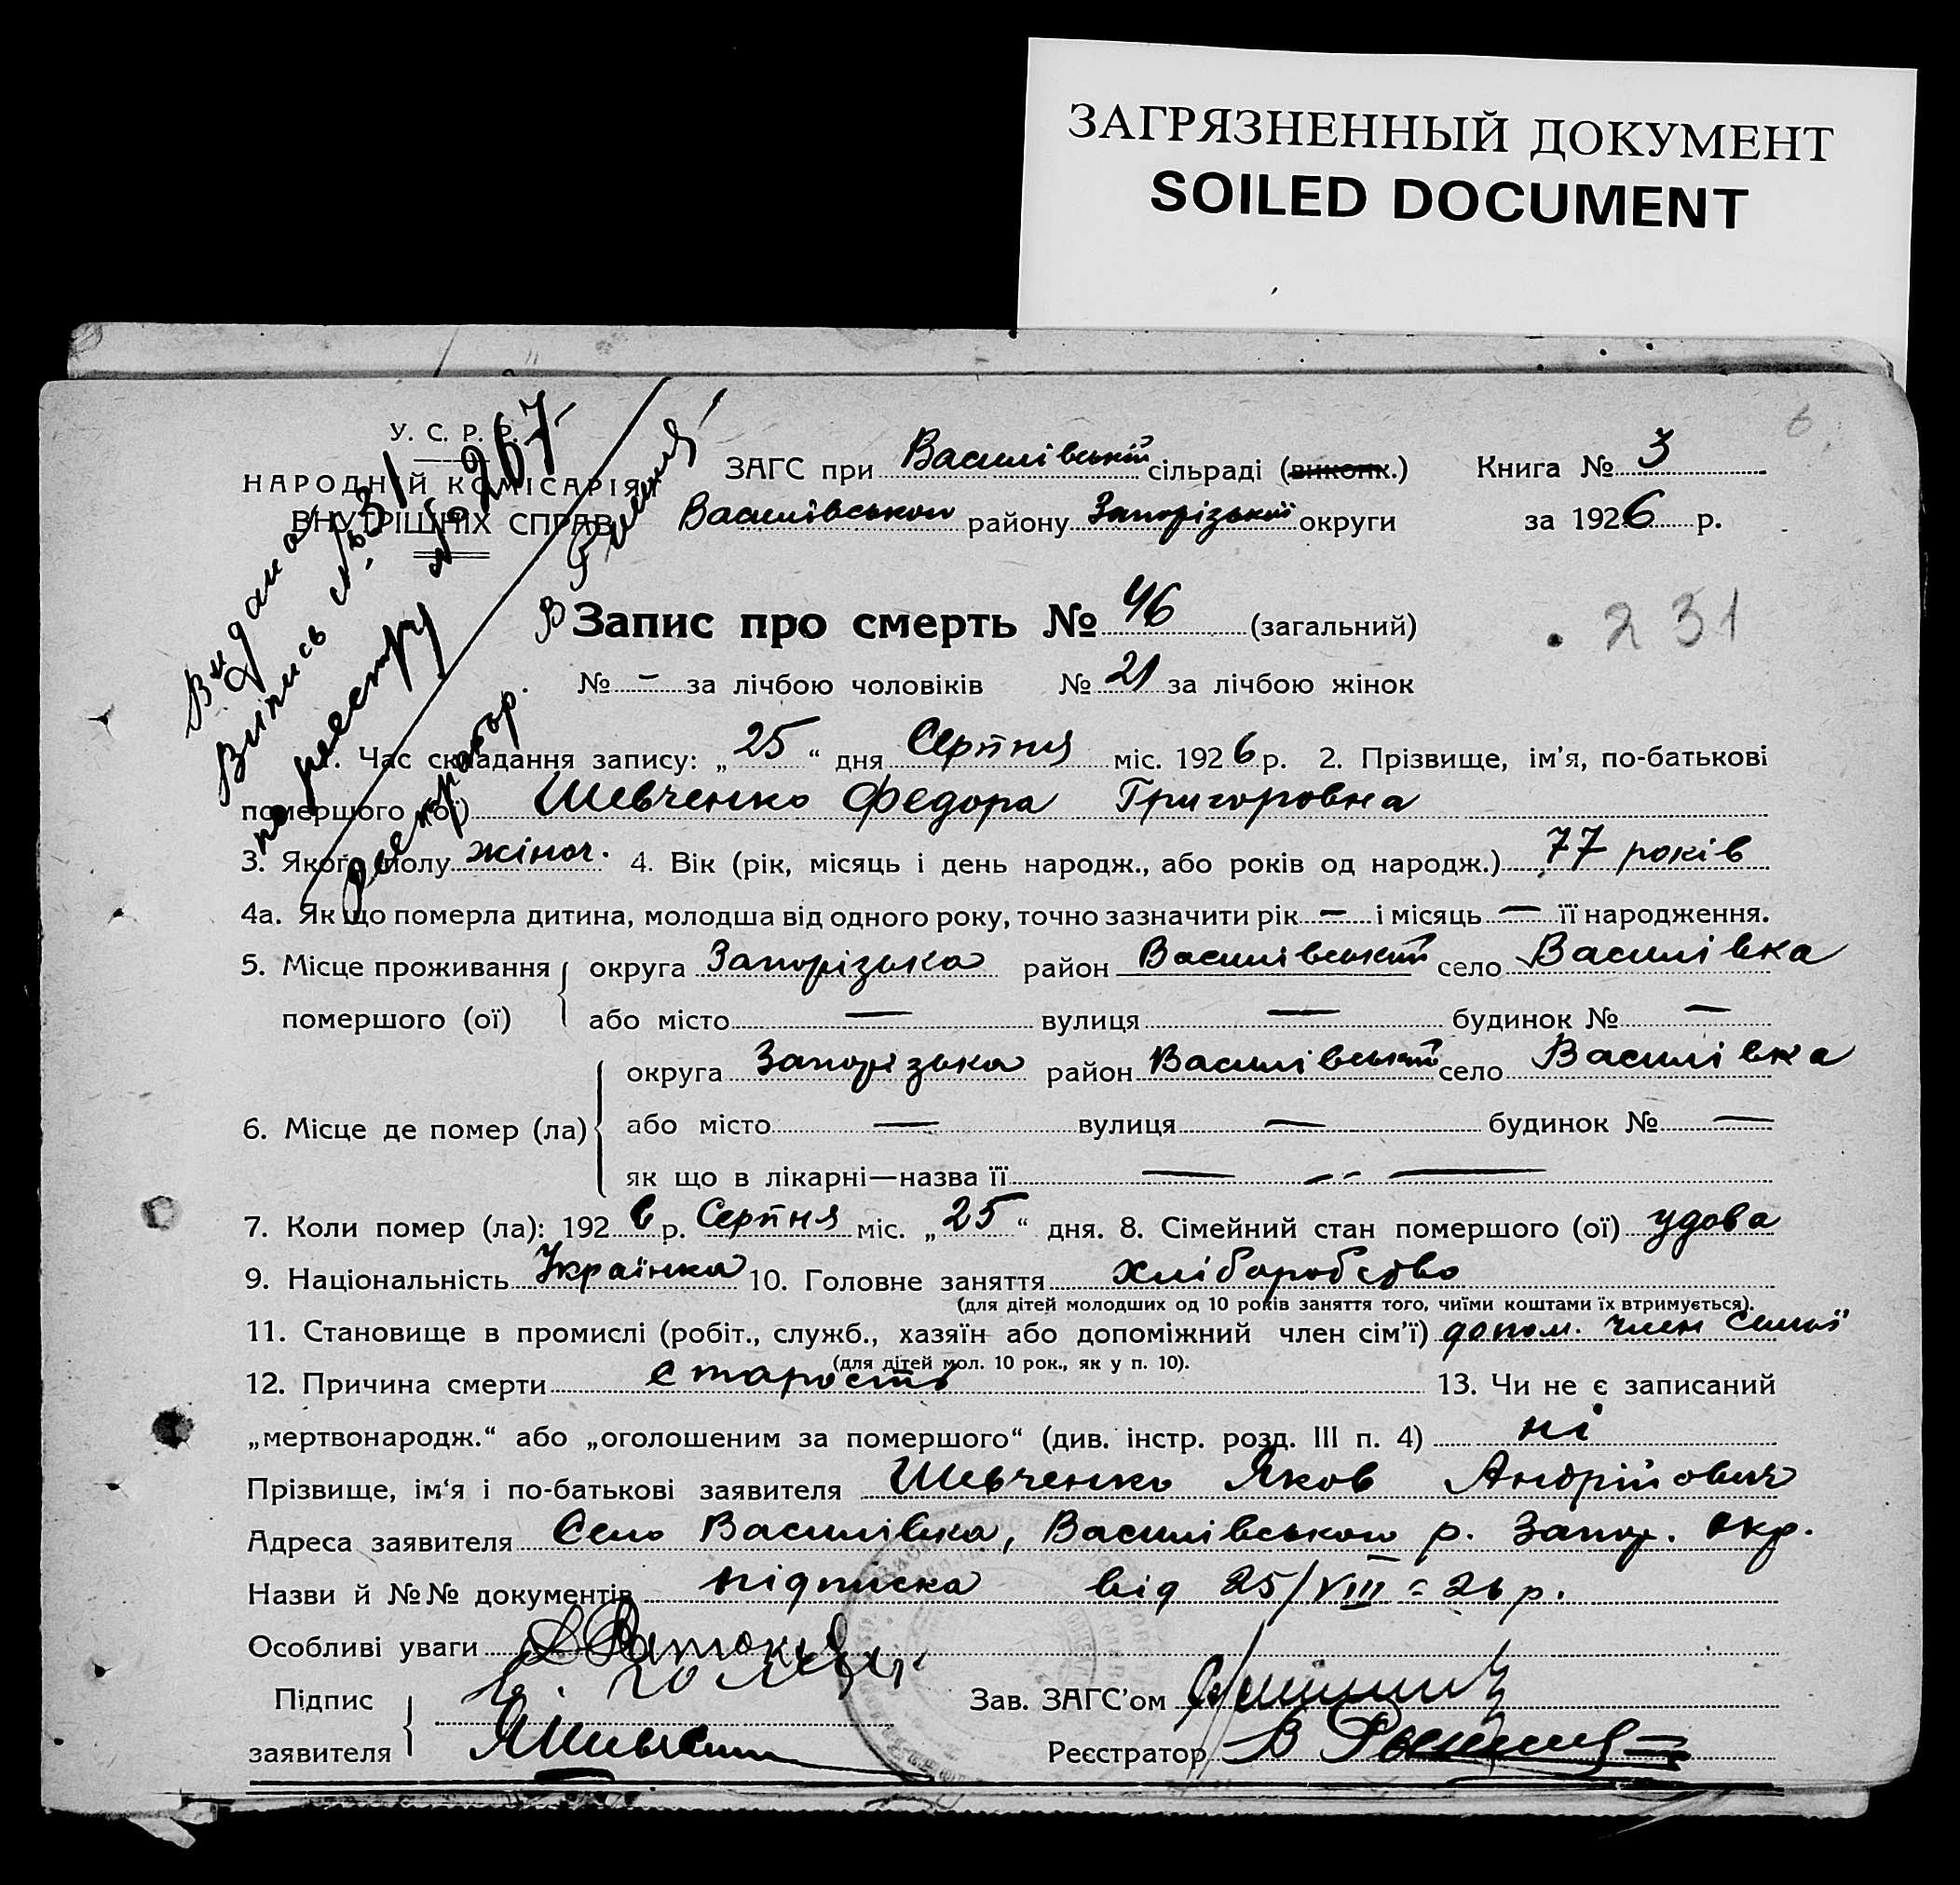 ЗАГРЯЗНЕННЫЙ ДОКУМЕНТ
SOILED DOCUMENT
У. С. Р. Р.
НАРОДНІЙ КОМІСАРІЯТ
ВНУТРІШНІХ СПРАВ
ЗАГС при Василівській сільраді (виконк.) Книга № 3
Василівського району Запорізької округи за 1926 р.
Видана
Випись № 31
по реєстру № 267
Запис про смерть № 46 (загальний)
231
№ - за лічбою чоловіків № 21 за лічбою жінок
1. Час складання запису: „25“ дня Серпня міс. 1926 р. 2. Прізвище, ім'я, по-батькові
помершого (ої) Шевченко Федора Григоровна
3. Якого полу жіноч. 4. Вік (рік, місяць і день народж., або років од народж.) 77 років
4а. Як що померла дитина, молодша від одного року, точно зазначити рік — і місяць — її народження.
5. Місце проживання округа Запорізька район Василівський село Василівка
помершого (ої) або місто — вулиця — будинок № —
округа Запорізька район Василівський село Василівка
6. Місце де помер (ла) або місто — вулиця — будинок № —
як що в лікарні—назва її — — —
7. Коли помер (ла): 1926 р. Серпня міс. „25“ дня. 8. Сімейний стан помершого (ої) удова
9. Національність Українка 10. Головне заняття хліборобство
(для дітей молодших од 10 років заняття того, чиїми коштами їх втримується).
11. Становище в промислі (робіт., служб., хазяїн або допоміжний член сім'ї) допом. член семьї
(для дітей мол. 10 рок., як у п. 10).
12. Причина смерти старость 13. Чи не є записаний
„мертвонародж.“ або „оголошеним за помершого“ (див. інстр. розд. III п. 4) ні
Прізвище, ім'я і по-батькові заявителя Шевченко Яков Андрійович
Адреса заявителя Село Василівка, Василівського р. Запор. окр.
Назви й №№ документів підписка від 25/VIII - 26 р.
Особливі уваги
Підпис
заявителя
Зав. ЗАГС'ом
Реєстратор